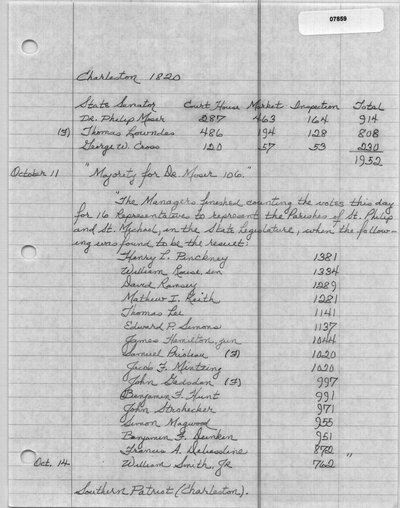 07859
Charleston 1820
State Senator Court House Market Inspection Total
Dr. Philip Moser 287 463 164 914
(F) Thomas Lowndes 486 194 128 808
George W. Cross 120 57 53 230
1952
October 11 "Majority for Dr. Moser 106."
"The Managers finished counting the votes this day
for 16 Representatives to represent the Parishes of St. Philip
and St. Michael, in the State Legislature, when the follow-
ing was found to be the result:
Henry L. Pinckney 1381
William Rouse, sen 1334
David Ramsey 1289
Mathew I. Keith 1281
Thomas Lee 1141
Edward P. Simons 1137
James Hamilton, jun 1044
Samuel Prioleau (F) 1020
Jacob F. Mintzing 1020
John Gadsden (F) 997
Benjamin F. Hunt 991
John Strohecker 971
Simon Magwood 955
Benjamin F. Dunkin 951
Francis A. Deliesseline 872 "
Oct. 14. William Smith, Jr. 762
Southern Patriot (Charleston).